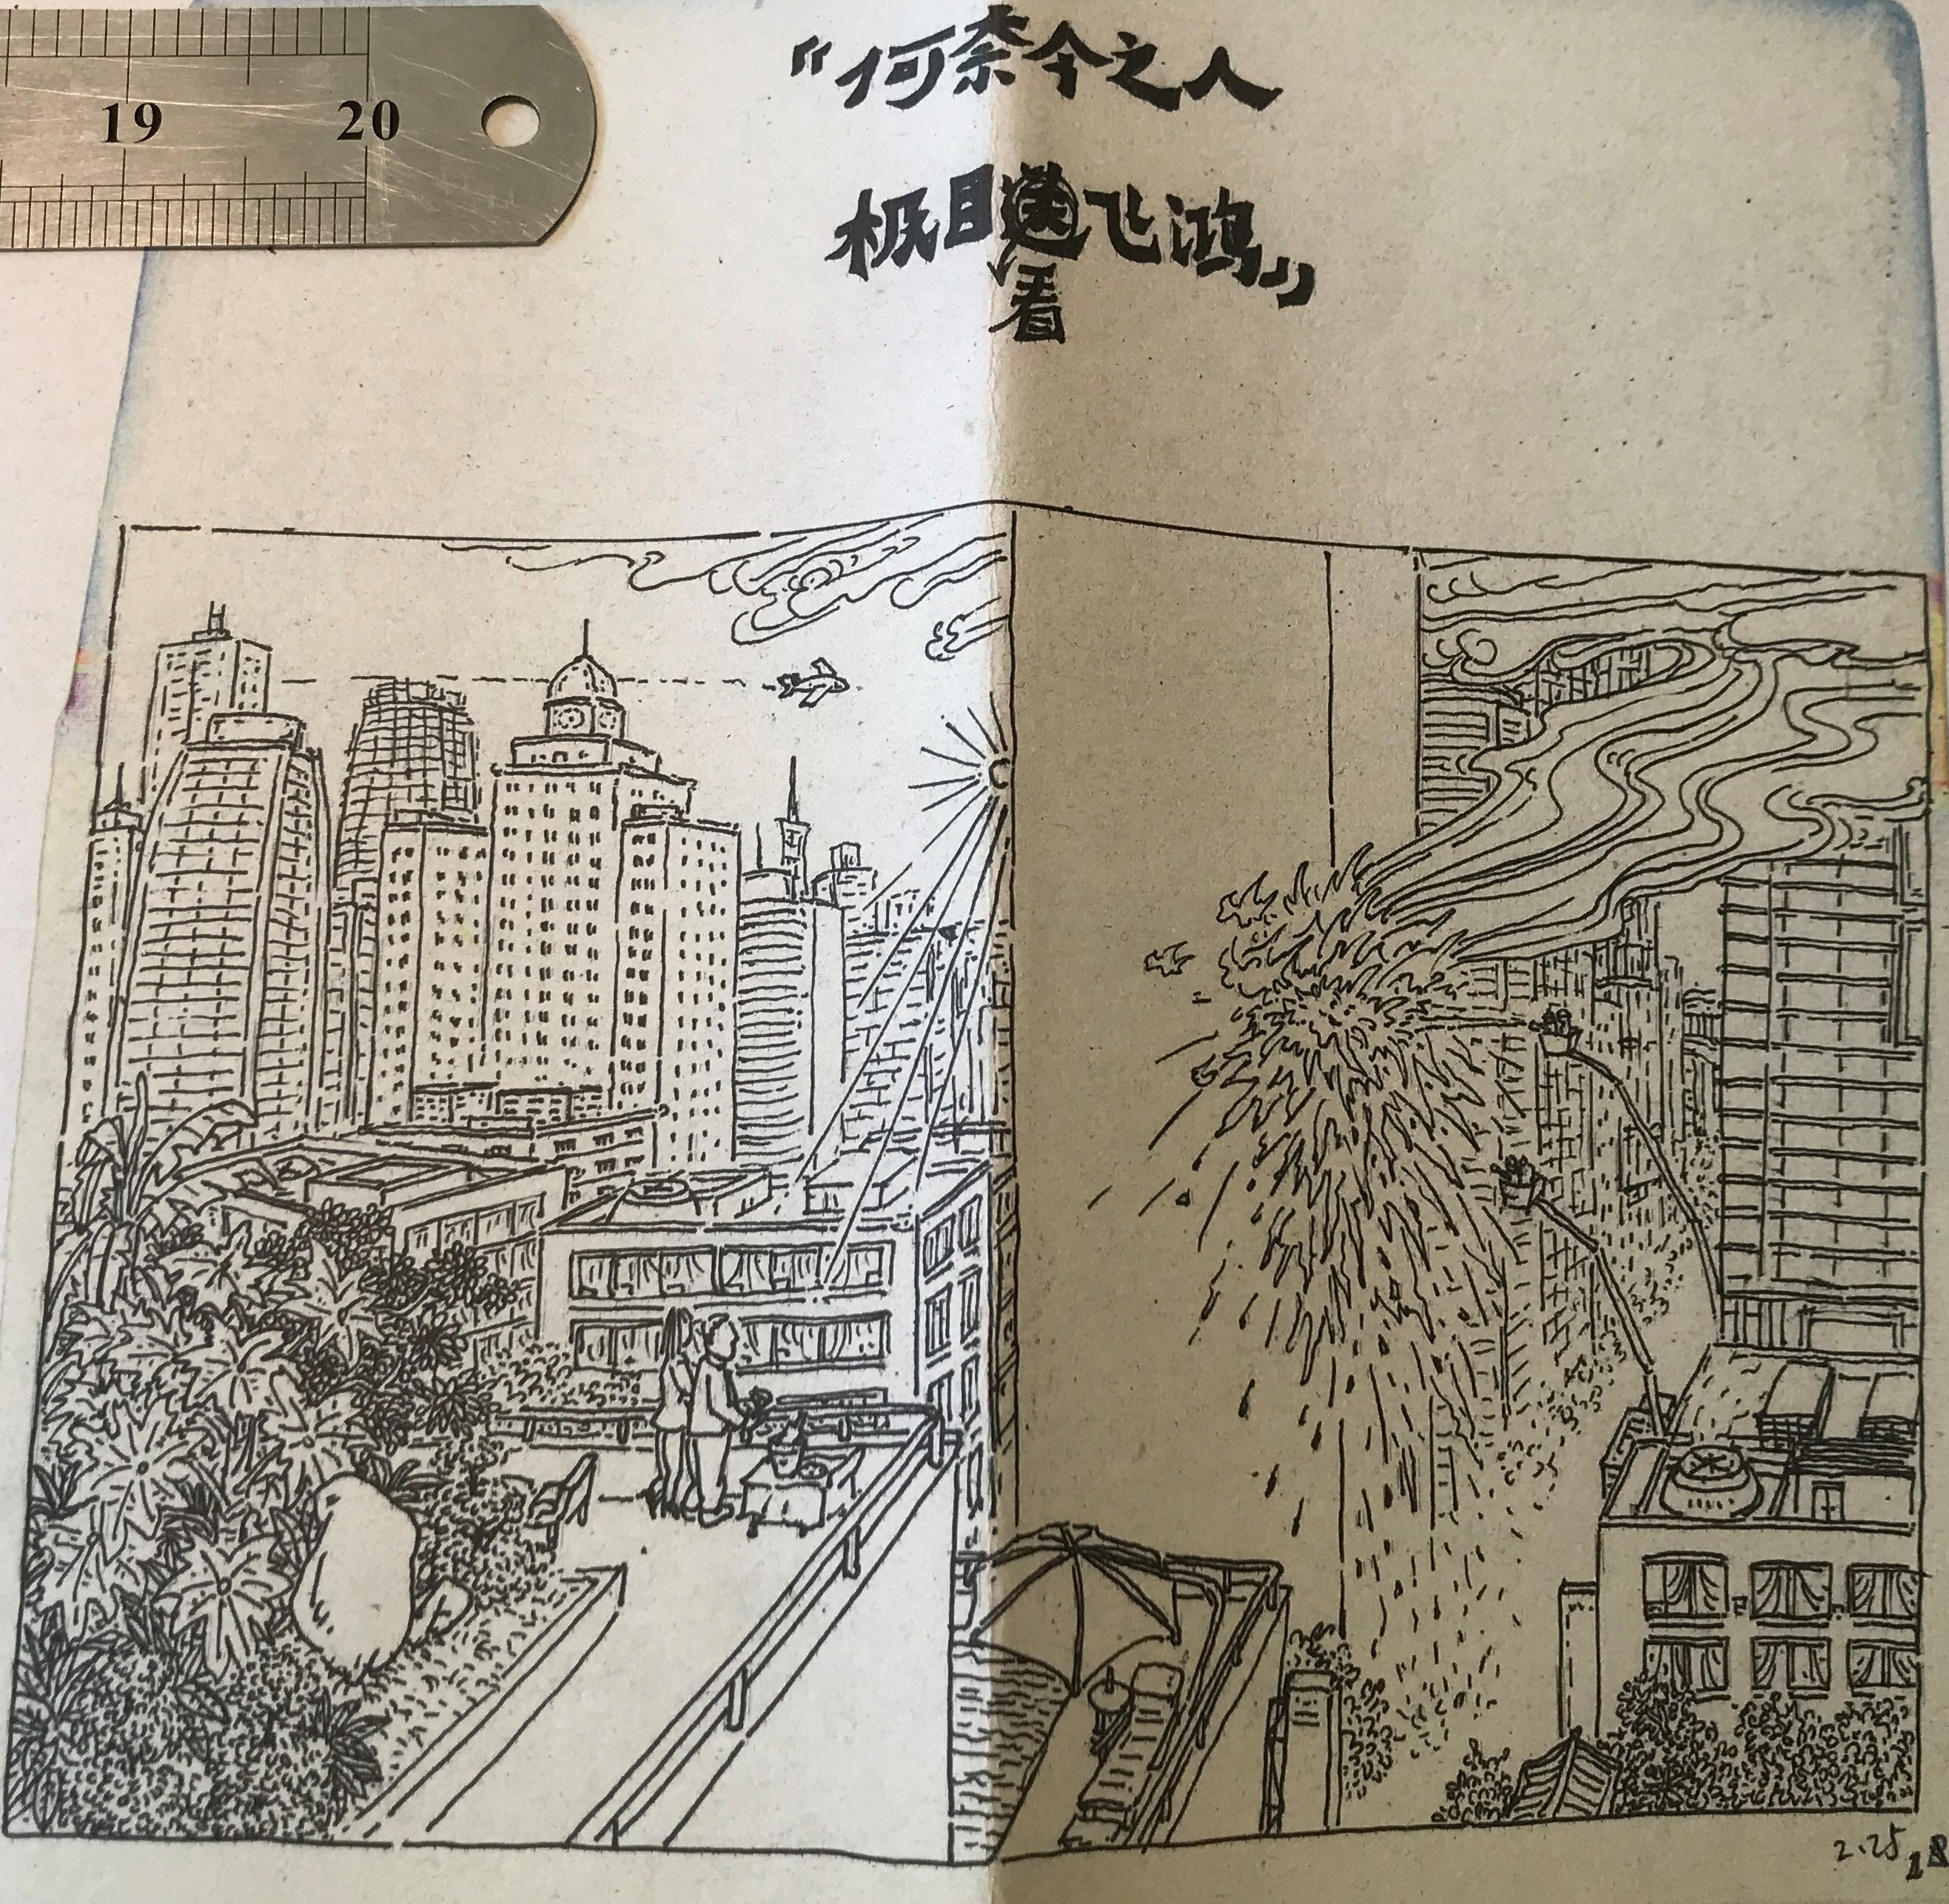 19 20
“何奈今之人
极目送飞鸿”
看
2.25
18